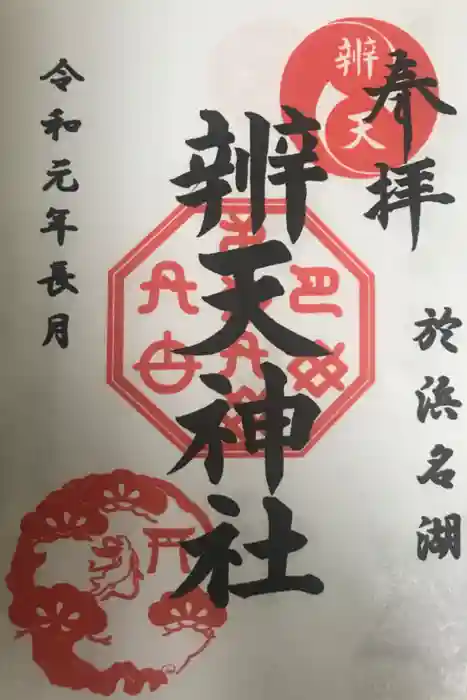 奉拝
於浜名湖
辨天
辨天神社
令和元年長月